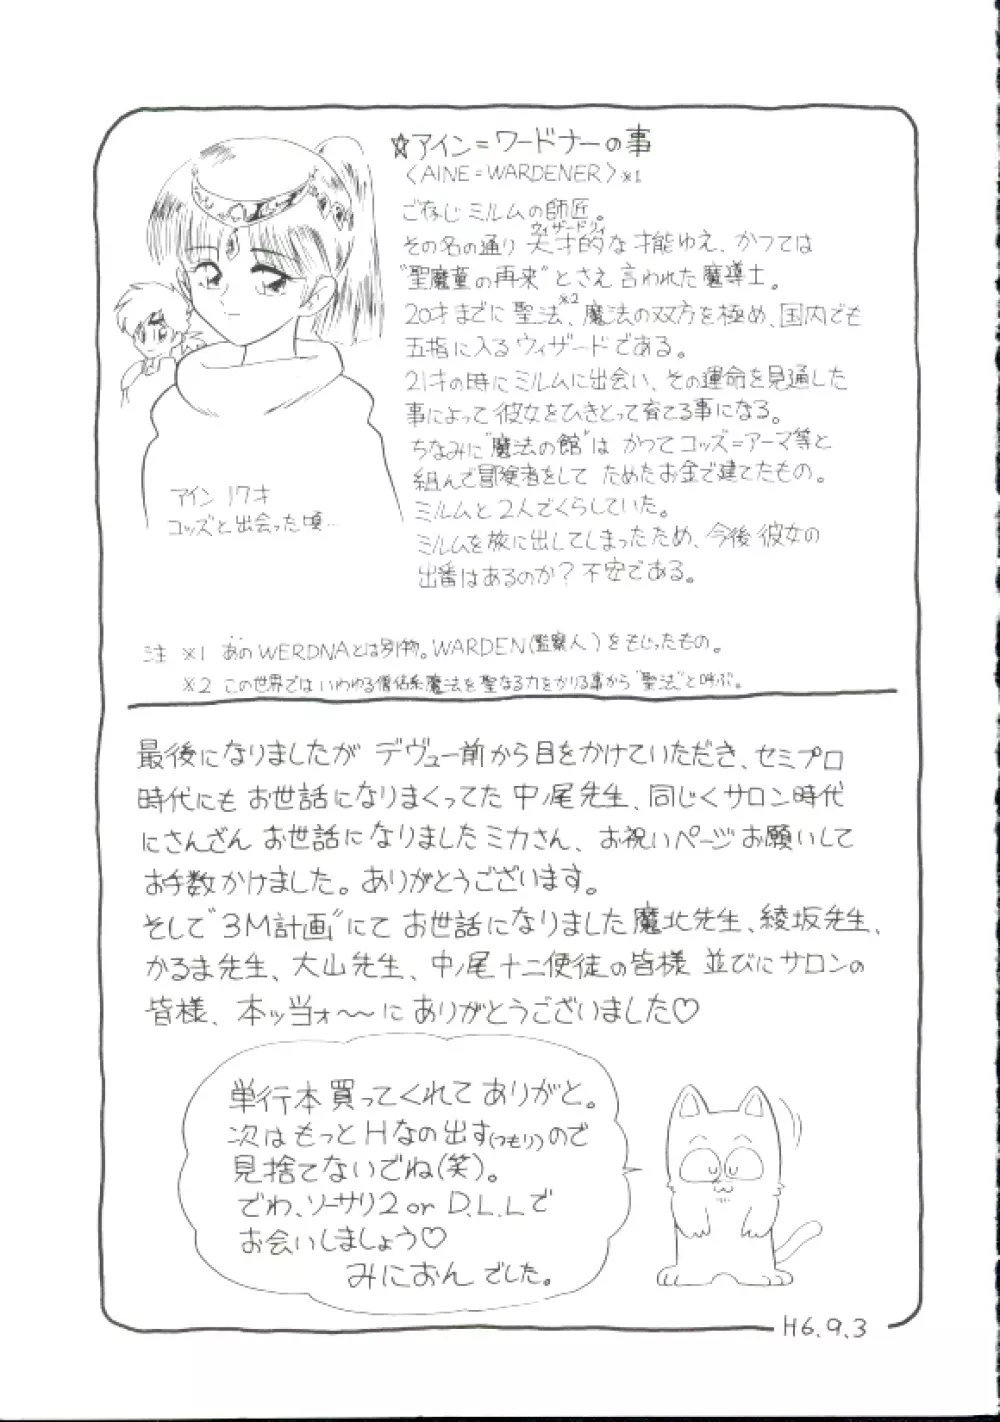 ☆アイン=ワードナーの事
〈AINE=WARDENER〉※1
ご存じ ミルムの師匠。
その名の通り 天才的(ウィザードリィ)な才能ゆえ、かつては
"聖魔童の再来"とさえ言われた魔導士。
20才までに聖法※2、魔法の双方を極め、国内でも
五指に入るウィザードである。
21才の時にミルムに出会い、その運命を見通した
事によって彼女をひきとって育てる事になる。
ちなみに"魔法の館"は かつてコッズ=アーマ等と
組んで冒険者をして ためたお金で建てたもの。
ミルムと2人でくらしていた。
ミルムを旅に出してしまったため、今後彼女の
出番はあるのか?不安である。
アイン 17才
コッズと出会った頃…
注 ※1 あのWERDNAとは別物。WARDEN(監察人)をもじったもの。
※2 この世界では いわゆる僧侶系魔法を聖なる力をかりる事から"聖法"と呼ぶ。
最後になりましたが デヴュー前から目をかけていただき、セミプロ
時代にも お世話になりまくってた 中ノ尾先生、同じくサロン時代
にさんざん お世話になりましたミカさん、お祝いページお願いして
お手数かけました。ありがとうございます。
そして"3M計画"にて お世話になりました 魔北先生、綾坂先生、
かるま先生、大山先生、中ノ尾十二使徒の皆様 並びにサロンの
皆様、本ッ当ォ〜〜に ありがとうございました♡
単行本買ってくれて ありがと。
次は もっとHなの出す(つもり)ので
見捨てないでね(笑)。
でわ、ソーサリ2 or D.L.Lで
お会いしましょう♡
みにおん でした。
H6.9.3